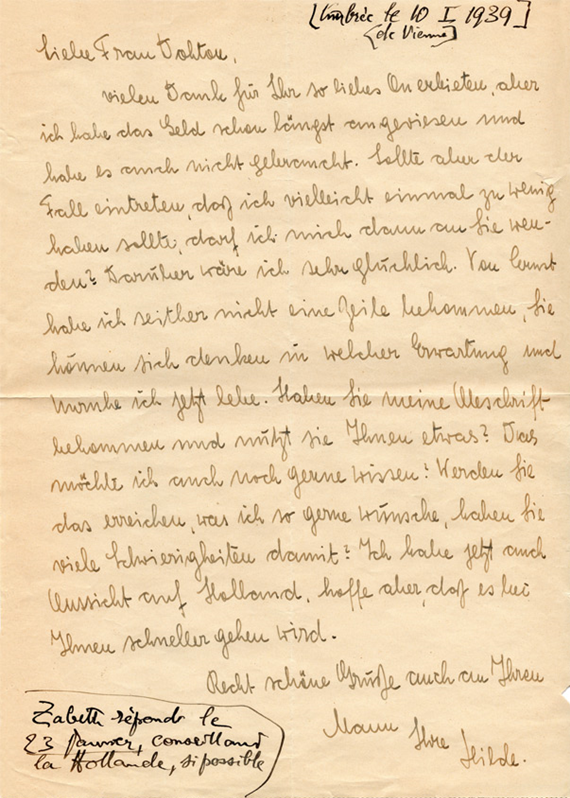 [timbrée le 10 I 1939]
(de Vienne)
Liebe Frau Dohton,
vielen Dank für Ihr so liebes Anerbieten, aber
ich habe das Geld schon längst angewiesen und
habe es auch nicht gebraucht. Sollte aber der
Fall eintreten, daß ich vielleicht einmal zu wenig
haben sollte, darf ich mich dann an Sie wen-
den? Darüber wäre ich sehr glücklich. Von Ernst
habe ich seither nicht eine Zeile bekommen, Sie
können sich denken in welcher Erwartung und
Unruhe ich jetzt lebe. Haben Sie meine Abschrift
bekommen und nützt sie Ihnen etwas? Das
möchte ich auch noch gerne wissen! Werden Sie
das erreichen, was ich so gerne wünsche, haben Sie
viele Schwierigkeiten damit? Ich habe jetzt auch
Aussicht auf Holland, hoffe aber, daß es bei
Ihnen schneller gehen wird.
Recht schöne Grüße auch an Ihren
Mann Ihre
Hilde.
Zabeth répond le
23 janvier, conseillant
la Hollande, si possible